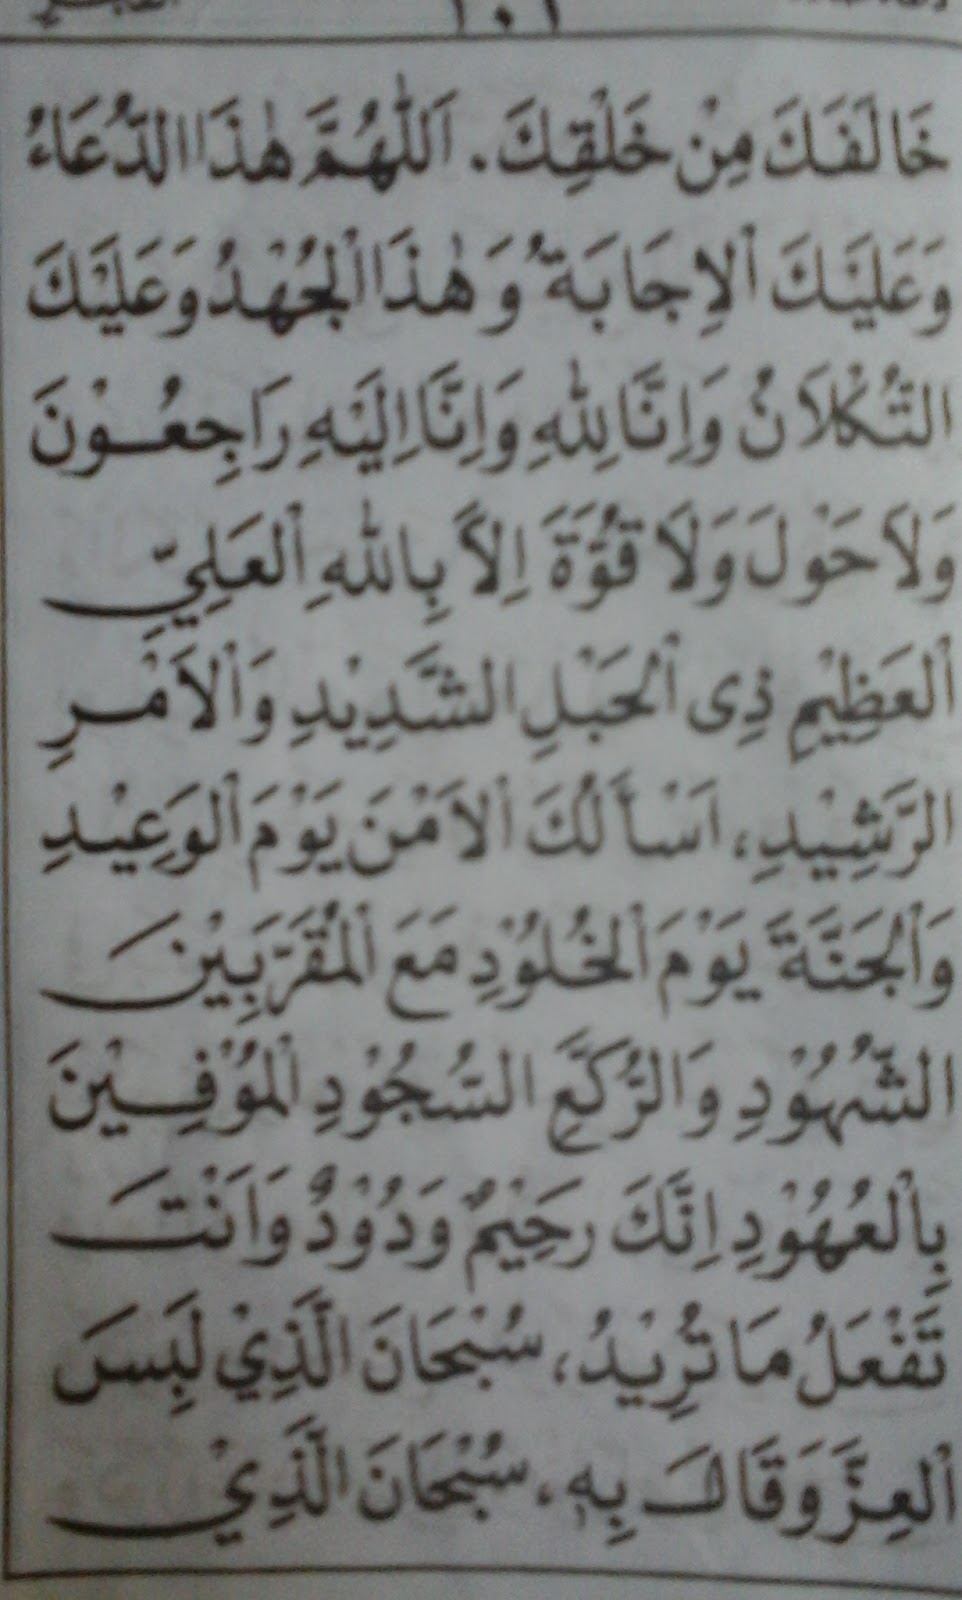 ١٠١
خَالَفَكَ مِنْ خَلْقِكَ. اَللّٰهُمَّ هٰذَا الدُّعَاءُ
وَعَلَيْكَ اْلاِجَابَةُ وَهٰذَا الْجُهْدُ وَعَلَيْكَ
التُّكْلَانُ وَاِنَّا لِلّٰهِ وَاِنَّا اِلَيْهِ رَاجِعُوْنَ
وَلاَ حَوْلَ وَلَا قُوَّةَ اِلاَّ بِاللّٰهِ اْلعَلِيِّ
اْلعَظِيْمِ ذِى اْلحَبْلِ الشَّدِيْدِ وَاْلاَمْرِ
الرَّشِيْدِ، اَسْأَلُكَ اْلاَمْنَ يَوْمَ اْلوَعِيْدِ
وَاْلجَنَّةَ يَوْمَ اْلخُلُوْدِ مَعَ اْلمُقَرَّبِيْنَ
الشُّهُوْدِ وَالرُّكَّعِ السُّجُوْدِ اْلمُوْفِيْنَ
بِاْلعُهُوْدِ اِنَّكَ رَحِيْمٌ وَدُوْدٌ وَاَنْتَ
تَفْعَلُ مَا تُرِيْدُ، سُبْحَانَ الَّذِيْ لَبِسَ
اْلعِزَّ وَقَالَ بِهِ، سُبْحَانَ الَّذِيْ